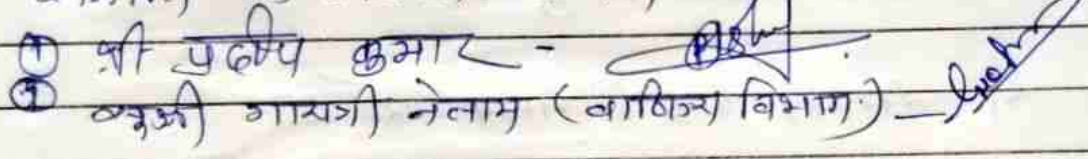 ① श्री प्रदीप कुमार -
② सुश्री गायत्री नेताम (वाणिज्य विभाग) -